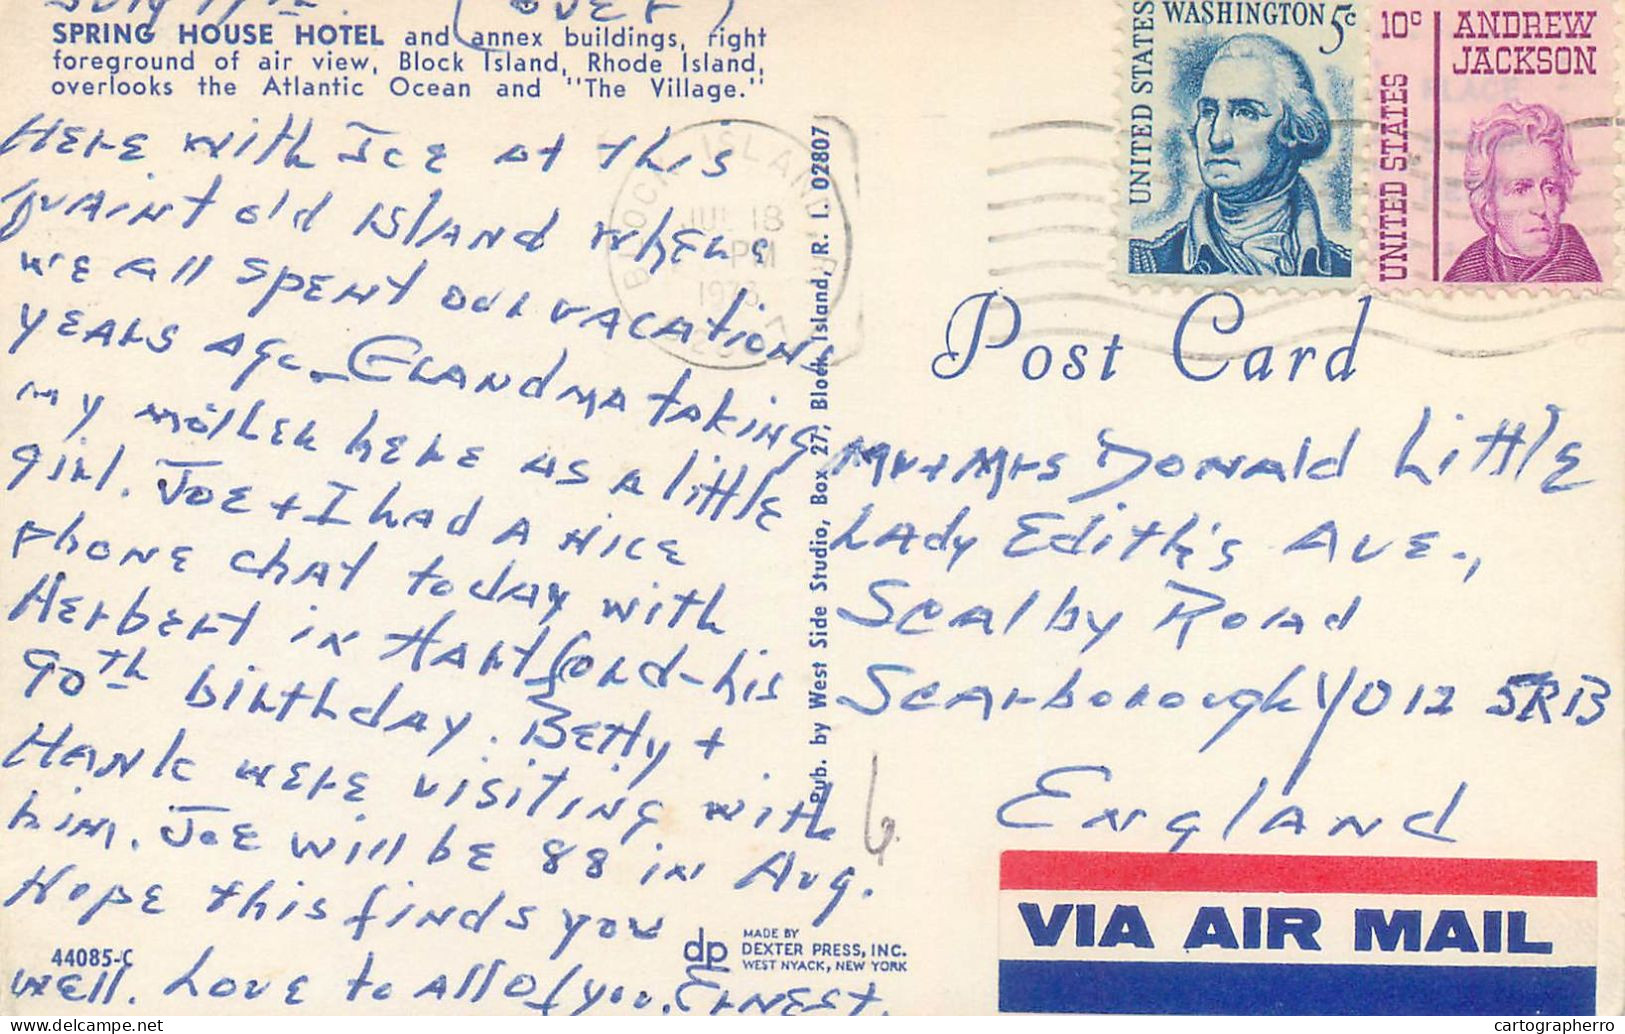 July 17th. (OVER)
SPRING HOUSE HOTEL and annex buildings, right
foreground of air view, Block Island, Rhode Island,
overlooks the Atlantic Ocean and "The Village."
HERE with JOE at this
quaint old ISLAND where
we all spent our vacations
years ago - Grandma taking
my mother here as a little
girl. JOE + I had a nice
phone chat today with
Herbert in Hartford - his
90th birthday. Betty +
Hank were visiting with
him. JOE will be 88 in Aug.
Hope this finds you
well. Love to all of you. ERNEST.
44085-C
dp
MADE BY
DEXTER PRESS, INC.
WEST NYACK, NEW YORK
Pub. by West Side Studio, Box 27, Block Island, R. I. 02807
BLOCK ISLAND
JUL 18
PM
UNITED STATES
WASHINGTON 5c
10c
UNITED STATES
ANDREW
JACKSON
Post Card
Mr + Mrs Donald Little
Lady Edith's Ave.,
Scalby Road
Scarborough YO12 5RB
England
VIA AIR MAIL
cartographerro